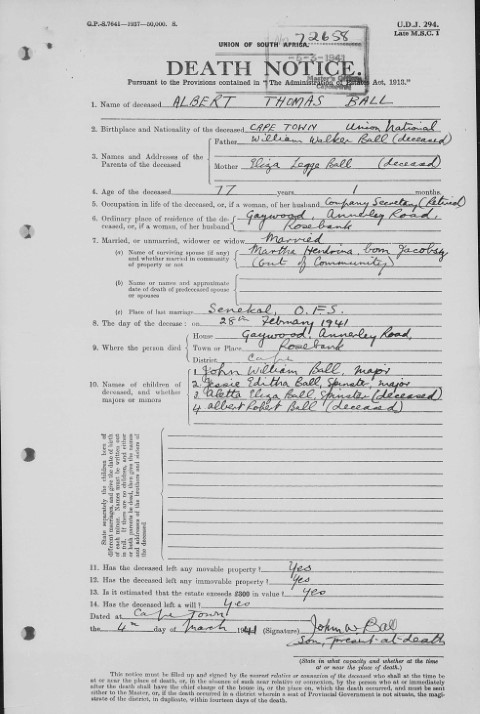 G.P.-S.7641—1937—50,000. S.
U.D.J. 294.
Late M.S.C. 1
72658
UNION OF SOUTH AFRICA.
-5-3-1941
DEATH NOTICE.
Pursuant to the Provisions contained in "The Administration of Estates Act, 1913."
1. Name of deceased ALBERT THOMAS BALL
2. Birthplace and Nationality of the deceased CAPE TOWN Union National
3. Names and Addresses of the Parents of the deceased
Father William Walker Ball (deceased)
Mother Eliza Legge Ball (deceased)
4. Age of the deceased 77 years 1 months.
5. Occupation in life of the deceased, or, if a woman, of her husband Company Secretary (Retired)
6. Ordinary place of residence of the deceased, or, if a woman, of her husband
Gaywood, Annerley Road,
Rosebank
7. Married, or unmarried, widower or widow Married
(a) Name of surviving spouse (if any) and whether married in community of property or not
Martha Hendrina, born Jacobsz
(out of Community)
(b) Name or names and approximate date of death of predeceased spouse or spouses
(c) Place of last marriage Senekal, O.F.S.
8. The day of the decease: on 28th February 1941
9. Where the person died
House Gaywood, Annerley Road,
Town or Place Rosebank
District Cape
10. Names of children of deceased, and whether majors or minors
1 John William Ball, major
2 Jessie Editha Ball, Spinster, major
3 Aletta Eliza Ball, Spinster (deceased)
4 Albert Robert Ball (deceased)
State separately the children born of different marriages, and give the date of birth of each minor. Names must be written out in full. If there are no children, and either or both parents be dead, then give the names and addresses of the brothers and sisters of the deceased
11. Has the deceased left any movable property? Yes
12. Has the deceased left any immovable property? Yes
13. Is it estimated that the estate exceeds £300 in value? Yes
14. Has the deceased left a will? Yes
Dated at Cape Town
the 4th day of March 1941 (Signature) John W. Ball
Son, present-at-death
(State in what capacity and whether at the time at or near the place of death.)
This notice must be filled up and signed by the nearest relative or connection of the deceased who shall at the time be
at or near the place of death, or, in the absence of such near relative or connection, by the person who at or immediately
after the death shall have the chief charge of the house in, or the place on, which the death occurred, and must be sent
either to the Master, or, if the death occurred in a district wherein a seat of Provincial Government is not situate, the magistrate
of the district, in duplicate, within fourteen days of the death.